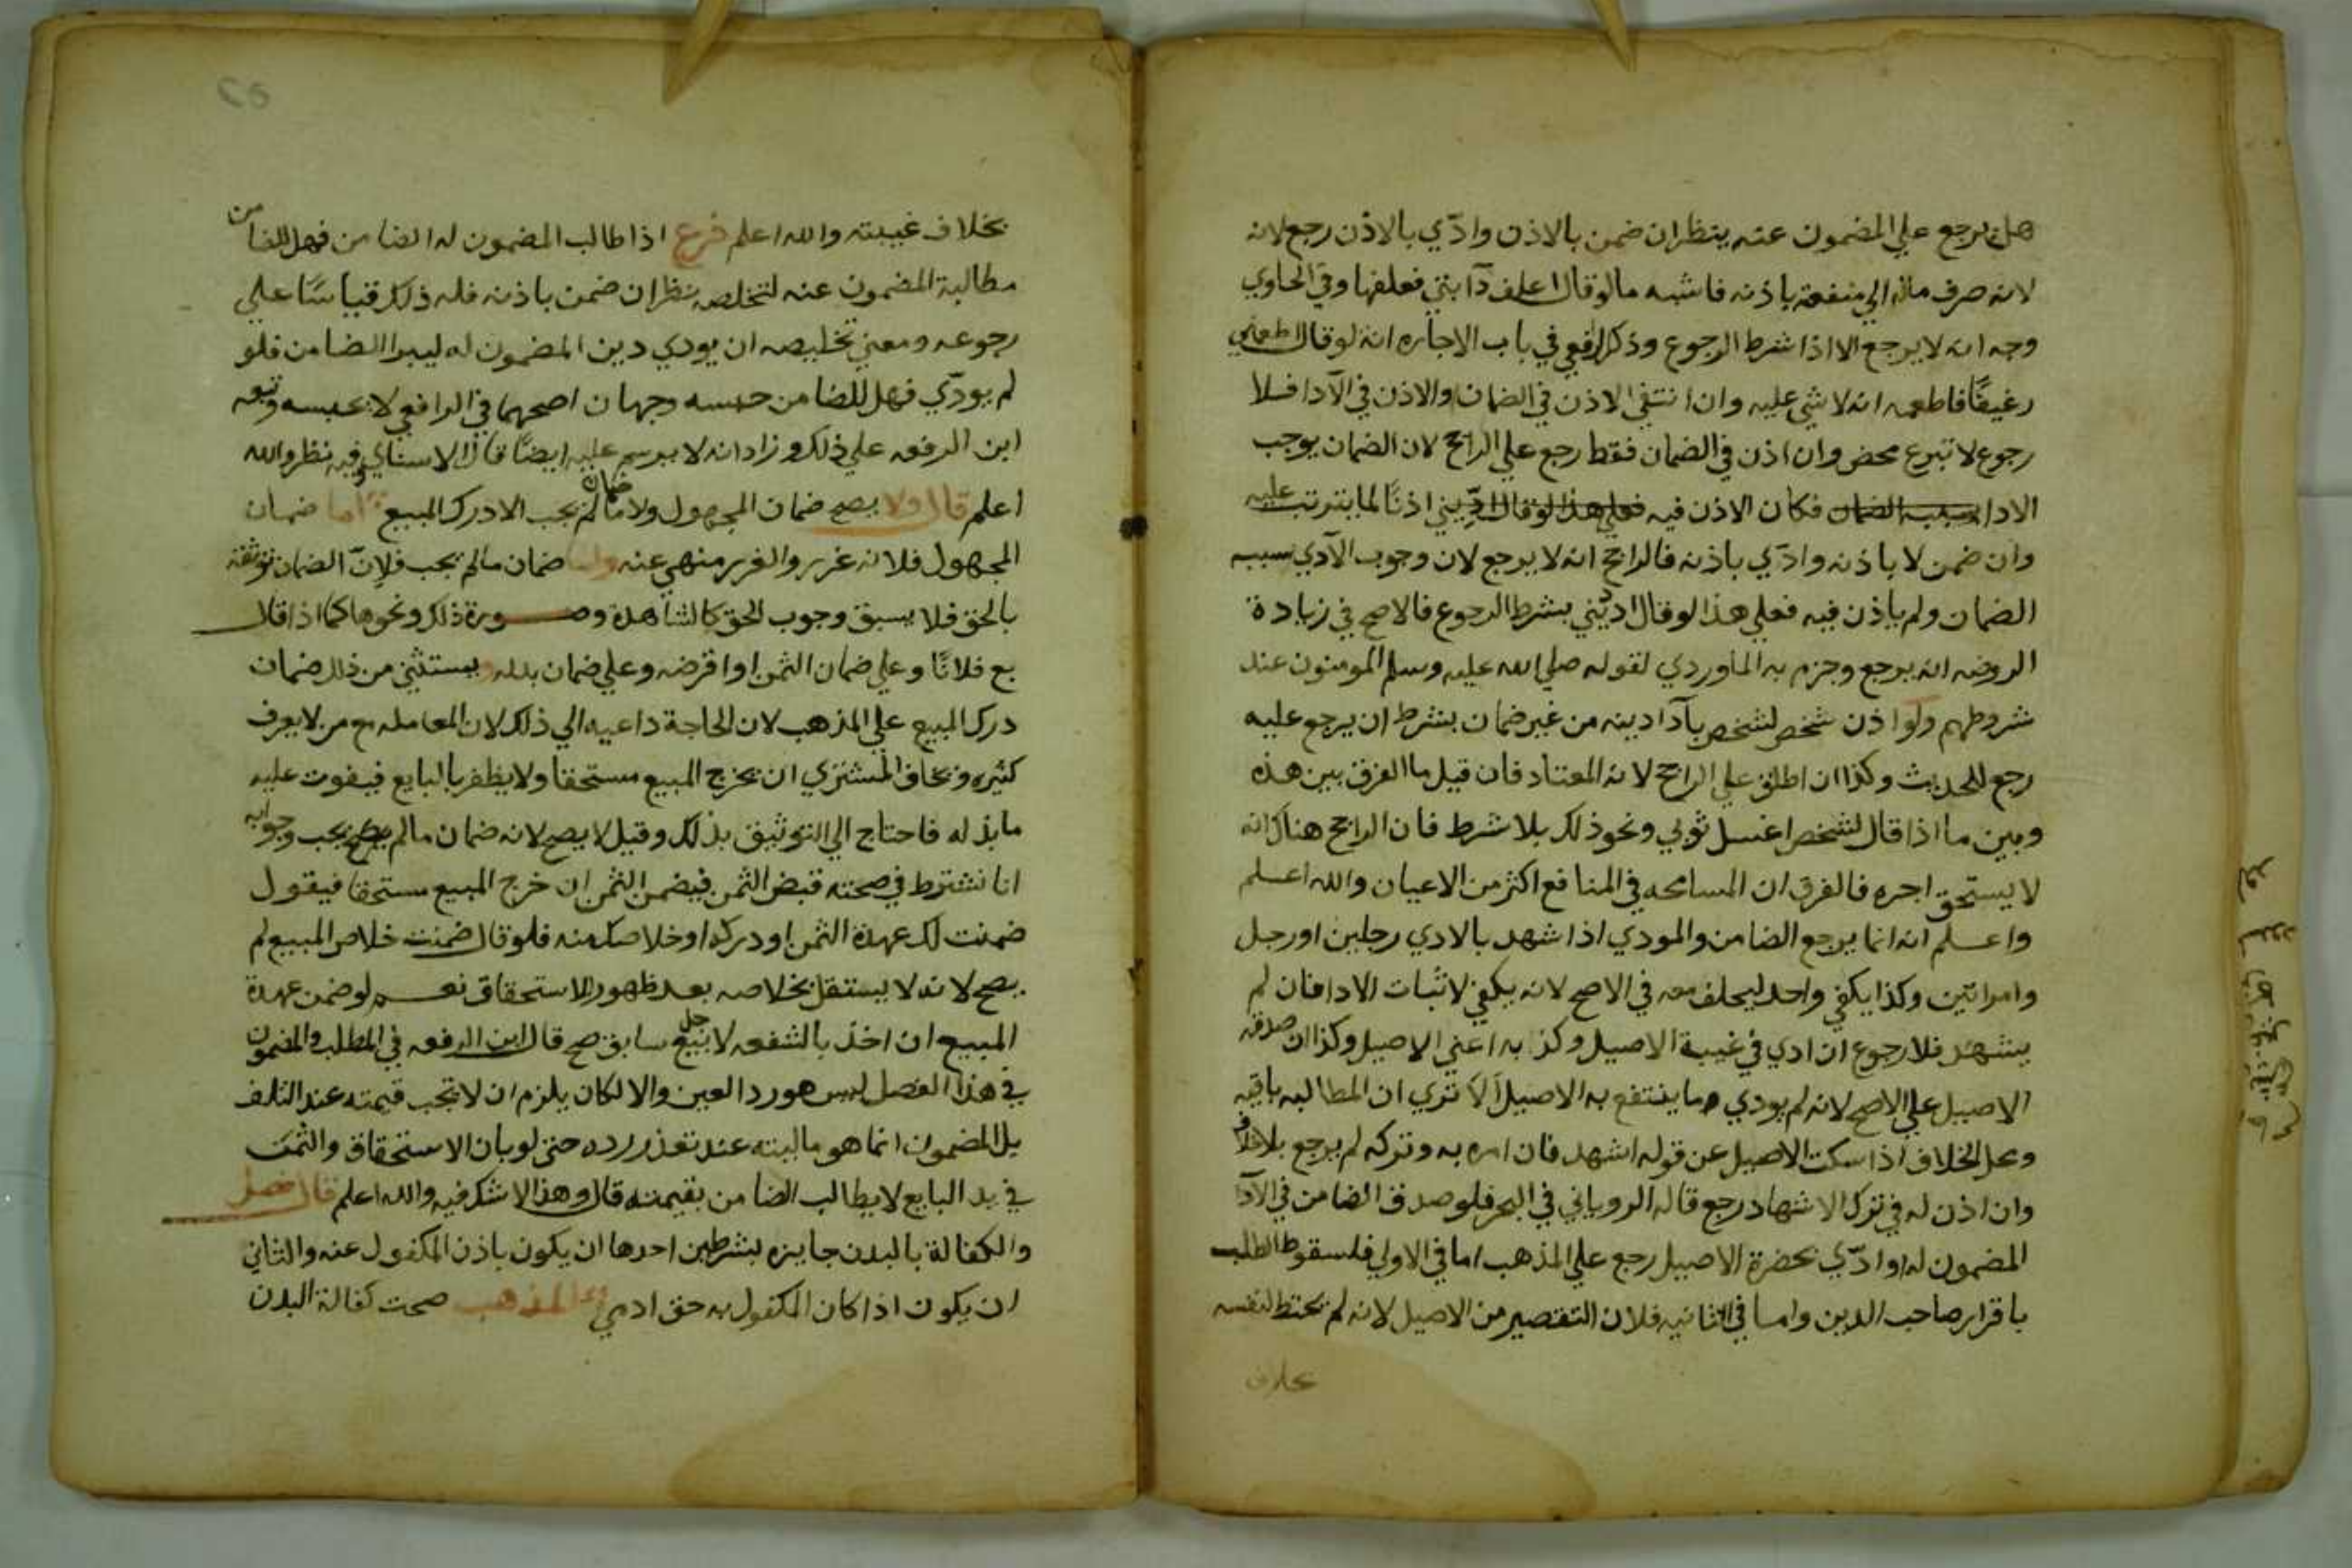 هل يرجع علي المضمون عنه ينظر ان ضمن بالاذن وادّي بالاذن رجع لانه
لانه صرف ماله الي منفعته باذنه فاشبه مالو قال اعلف دآبتي فعلفها وفي الحاوي
وجه انه لا يرجع الا اذا شرط الرجوع وذكر الرافعي في باب الاجاره انه لو قال اطعمني
رغيفًا فاطعمه انه لا شي عليه وان انتفي الاذن في الضمان والاذن في الآدا فلا
رجوع لا تبرع محض وان اذن في الضمان فقط رجع علي الراجح لان الضمان يوجب
الادا فكان الاذن فيه اذنًا لما يترتب عليه
وان ضمن لا باذنه وادّي باذنه فالراجح انه لا يرجع لان وجوب الآدي سببه
الضمان ولم ياذن فيه فعلي هذا لو قال ادّ ديني بشرط الرجوع فالاصح في زيادة
الروضه انه يرجع وجزم به الماوردي لقوله صلي الله عليه وسلم المومنون عند
شروطهم ولو اذن شخص لشخص بآدا دينه من غير ضمان بشرط ان يرجع عليه
رجع للحديث وكذا ان اطلق علي الراجح لانه المعتاد فان قيل ما الفرق بين هذه
وبين ما اذا قال لشخص اغسل ثوبي ونحو ذلك بلا شرط فان الراجح هناك انه
لا يستحق اجره فالفرق ان المسامحه في المنافع اكثر من الاعيان والله اعلم
واعلم انه انما يرجع الضامن والمودي اذا شهد بالادي رجلين او رجل
وامراتين وكذا يكفي واحد ليحلف معه في الاصح لانه يكفي لاثبات الادا فان لم
يشهد فلا رجوع ان ادي في غيبة الاصيل وكذبه اعني الاصيل وكذا ان صدقه
الاصيل علي الاصح لانه لم يودي ما ينتفع به الاصيل ألا تري ان المطالبه باقيه
ومحل الخلاف اذا سكت الاصيل عن قوله اشهد فان امره به وتركه لم يرجع بلا خلاف
وان اذن له في ترك الاشهاد رجع قاله الروياني في البحر فلو صدق الضامن في الآدا
المضمون له او ادّي بحضرة الاصيل رجع علي المذهب اما في الاولي فلسقوط الطلب
باقرار صاحب الدين واما في الثانيه فلان التقصير من الاصيل لانه لم يحتط لنفسه
بخلاف
بخلاف غيبته والله اعلم فرع اذا طالب المضمون له الضامن فهل للضامن
مطالبة المضمون عنه لتخلصه ينظر ان ضمن باذنه فله ذلك قياسًا علي
رجوعه ومعني تخليصه ان يودي دين المضمون له ليبرا الضامن فلو
لم يودّي فهل للضامن حبسه وجهان اصحهما في الرافعي لا يحبسه وتبعه
ابن الرفعه علي ذلك وزاد انه لا يرسم عليه ايضًا قال الاسناي وفيه نظر والله
اعلم قال ولا يصح ضمان المجهول ولا ضمان ما لم يجب الا درك المبيع اما ضمان
المجهول فلانه غرر والغرر منهي عنه واما ضمان مالم يجب فلانّ الضمان توثقة
بالحق فلا يسبق وجوب الحق كالشاهدة وصورة ذلك ونحوها كما اذا قال
بع فلانًا وعلي ضمان الثمن او اقرضه وعلي ضمان بدله ويستثني من ذلك ضمان
درك المبيع علي المذهب لان الحاجة داعيه الي ذلك لان المعامله مع من لا يعرف
كثيره ويخاف المشتري ان يخرج المبيع مستحقا ولا يظفر بالبايع فيفوت عليه
ما بذله فاحتاج الي التوثيق بذلك وقيل لا يصح لانه ضمان مالم يجب وجوابه
انا نشترط في صحته قبض الثمن فيضمن الثمن ان خرج المبيع مستحقا فيقول
ضمنت لك عهدة الثمن او دركه او خلاصك منه فلو قال ضمنت خلاص المبيع لم
يصح لانه لا يستقل بخلاصه بعد ظهور الاستحقاق نعم لو ضمن عهدة
المبيع ان اخذ بالشفعه لاجل بيع سابق صح قال ابن الرفعه في المطلب والمضمون
في هذا الفصل ليس هو رد العين والا لكان يلزم ان لا تجب قيمته عند التلف
بل المضمون انما هو ماليته عند تعذر رده حتي لو بان الاستحقاق والثمن
في يد البايع لا يطالب الضامن بقيمته قال وهذا لا شك فيه والله اعلم قال فصل
والكفالة بالبدن جايزه بشرطين احدها ان يكون باذن المكفول عنه والثاني
ان يكون اذا كان المكفول به حق ادمي المذهب صحت كفالة البدن